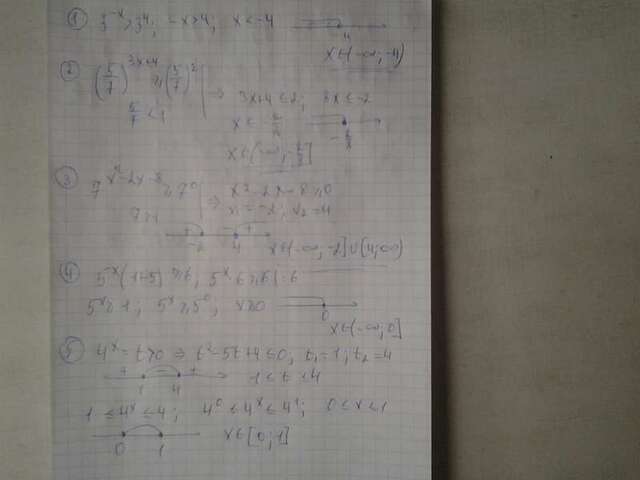 ① 3^-x > 3^4; -x > 4, x < -4
4
x∈(-∞; -4)
② (5/7)^3x+4 ≥ (5/7)^2 ⇒ 3x+4 ≤ 2; 3x ≤ -2
5/7 < 1
x ≤ -2/3
-2/3
x∈(-∞; -2/3]
③ 7^x²-2x-8 ≥ 7^0 ⇒ x²-2x-8 ≥ 0
7>1 x₁ = -2; x₂ = 4
-2 4 + x∈(-∞; -2]∪[4; ∞)
④ 5^x(1+5) ≥ 6, 5^x·6 ≥ 6 |:6
5^x ≥ 1, 5^x ≥ 5^0, x ≥ 0
0
x∈(-∞; 0]
⑤ 4^x = t > 0 ⇒ t²-5t+4 ≤ 0, t₁ = 1; t₂ = 4
+ - +
1 4 1 ≤ t ≤ 4
1 ≤ 4^x ≤ 4; 4^0 ≤ 4^x ≤ 4^1; 0 ≤ x ≤ 1
0 1 x∈[0; 1]